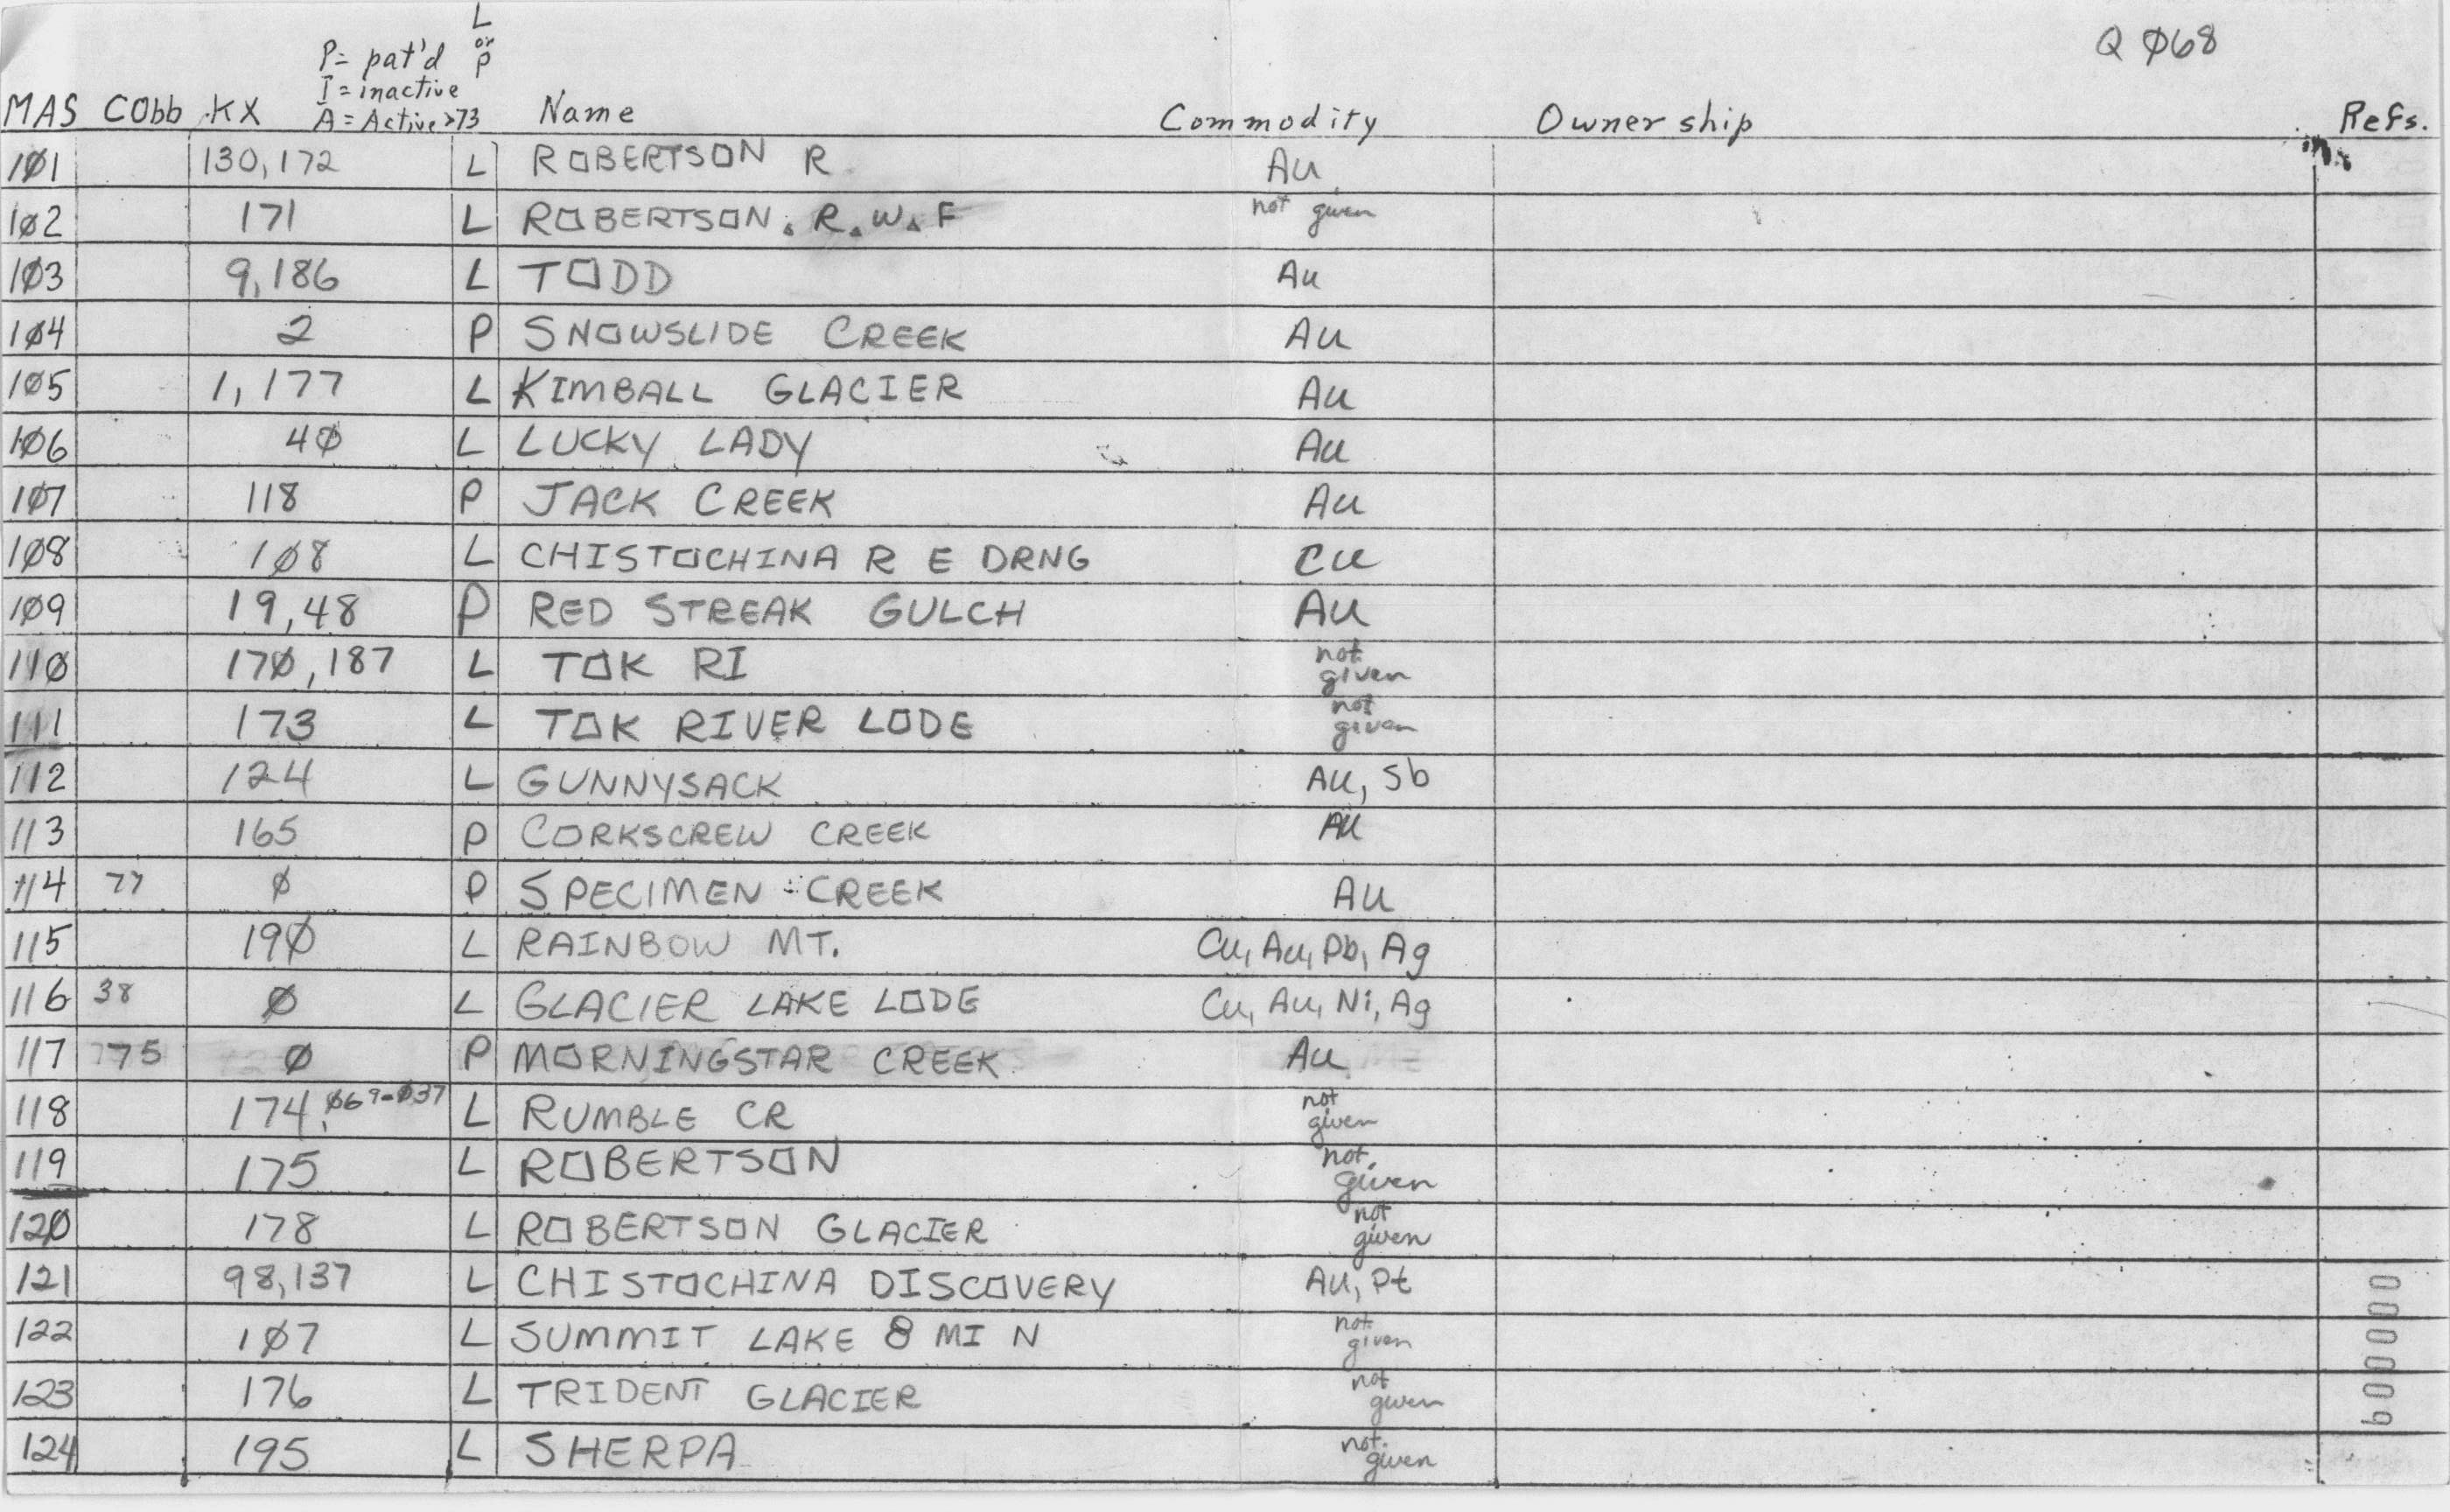 L
or
P
Q Ø68
P= pat'd
I = inactive
A = Active >73
MAS Cobb KX Name Commodity Ownership Refs.
1Ø1 130,172 L ROBERTSON R Au
1Ø2 171 L ROBERTSON. R. W. F not given
1Ø3 9,186 L TODD Au
1Ø4 2 P SNOWSLIDE CREEK Au
1Ø5 1,177 L KIMBALL GLACIER Au
1Ø6 4Ø L LUCKY LADY Au
1Ø7 118 P JACK CREEK Au
1Ø8 1Ø8 L CHISTOCHINA R E DRNG Cu
1Ø9 19,48 P RED STREAK GULCH Au
11Ø 17Ø,187 L TOK RI not given
111 173 L TOK RIVER LODE not given
112 124 L GUNNYSACK Au, Sb
113 165 P CORKSCREW CREEK Au
114 77 Ø P SPECIMEN CREEK Au
115 19Ø L RAINBOW MT. Cu, Au, Pb, Ag
116 38 Ø L GLACIER LAKE LODE Cu, Au, Ni, Ag
117 75 Ø P MORNINGSTAR CREEK Au
118 174, Ø69-Ø37 L RUMBLE CR not given
119 175 L ROBERTSON not given
12Ø 178 L ROBERTSON GLACIER not given
121 98,137 L CHISTOCHINA DISCOVERY Au, Pt
122 1Ø7 L SUMMIT LAKE 8 MI N not given
123 176 L TRIDENT GLACIER not given
124 195 L SHERPA not given